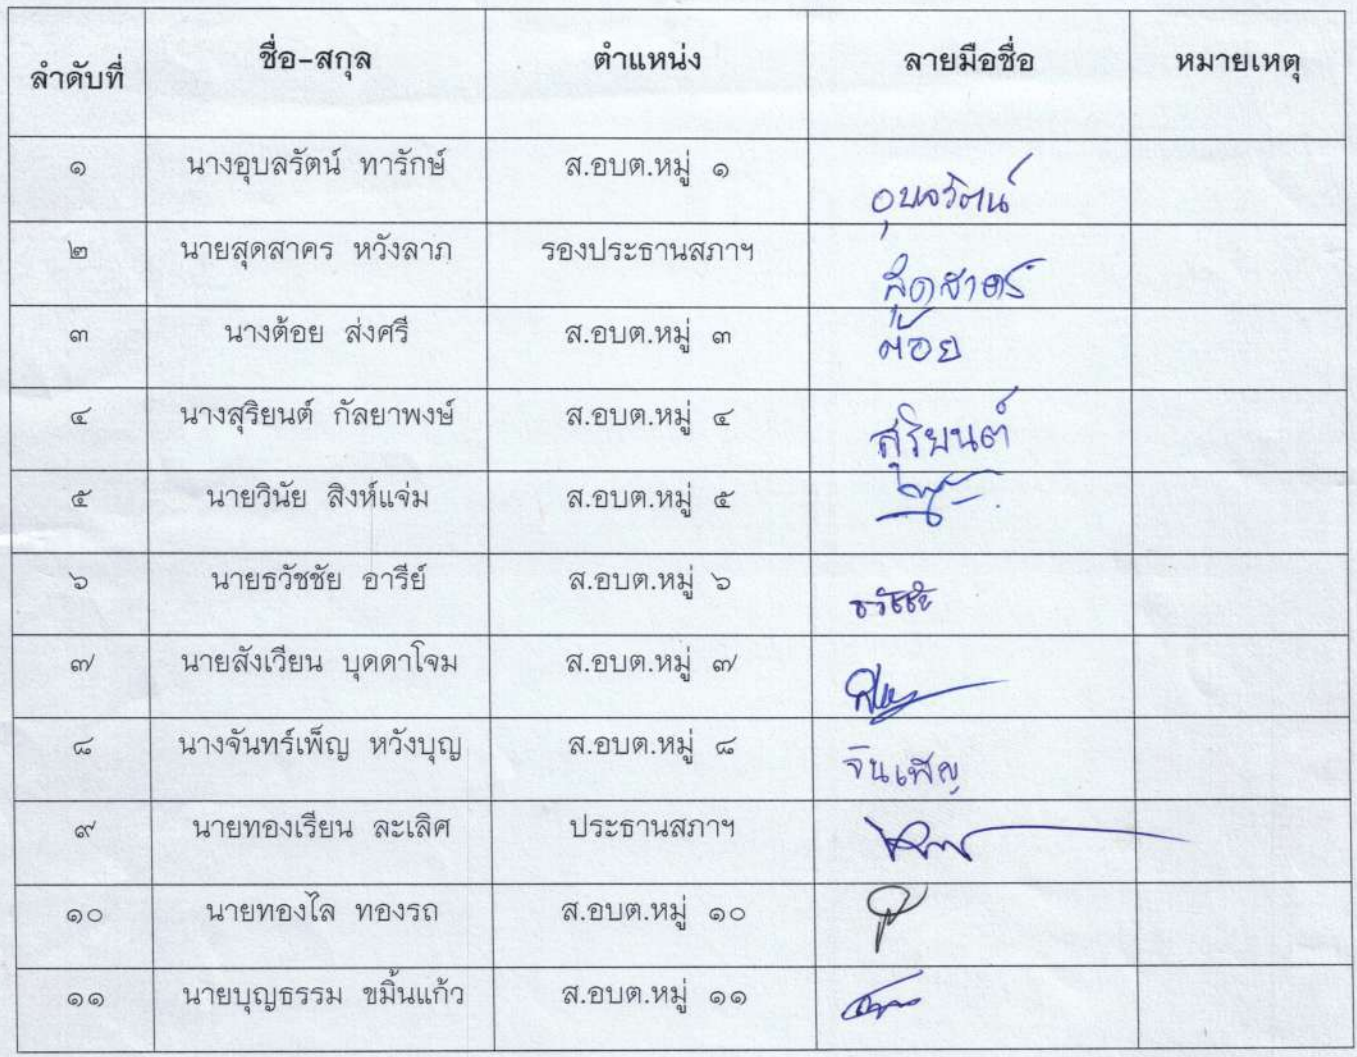 ลำดับที่ ชื่อ-สกุล ตำแหน่ง ลายมือชื่อ หมายเหตุ
๑ นางอุบลรัตน์ ทารักษ์ ส.อบต.หมู่ ๑ อุบลรัตน์
๒ นายสุดสาคร หวังลาภ รองประธานสภาฯ สุดสาคร
๓ นางต้อย ส่งศรี ส.อบต.หมู่ ๓ ต้อย
๔ นางสุริยนต์ กัลยาพงษ์ ส.อบต.หมู่ ๔ สุริยนต์
๕ นายวินัย สิงห์แจ่ม ส.อบต.หมู่ ๕
๖ นายธวัชชัย อารีย์ ส.อบต.หมู่ ๖ ธวัชชัย
๗ นายสังเวียน บุดดาโจม ส.อบต.หมู่ ๗
๘ นางจันทร์เพ็ญ หวังบุญ ส.อบต.หมู่ ๘
๙ นายทองเรียน ละเลิศ ประธานสภาฯ
๑๐ นายทองไล ทองรถ ส.อบต.หมู่ ๑๐
๑๑ นายบุญธรรม ขมิ้นแก้ว ส.อบต.หมู่ ๑๑